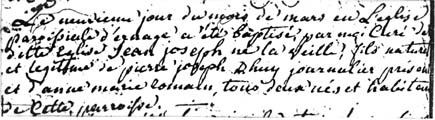 Le neuvieme jour du mois de mars en Leglise
paroissiale d'ernage a été baptisé par moi Curé de
ditte Eglise Jean joseph né la veille, fils naturel
et legitime de pierre joseph Dhuy journalier present
et d'anne marie romain, tous deux nés et habitans
de Cette parroisse.